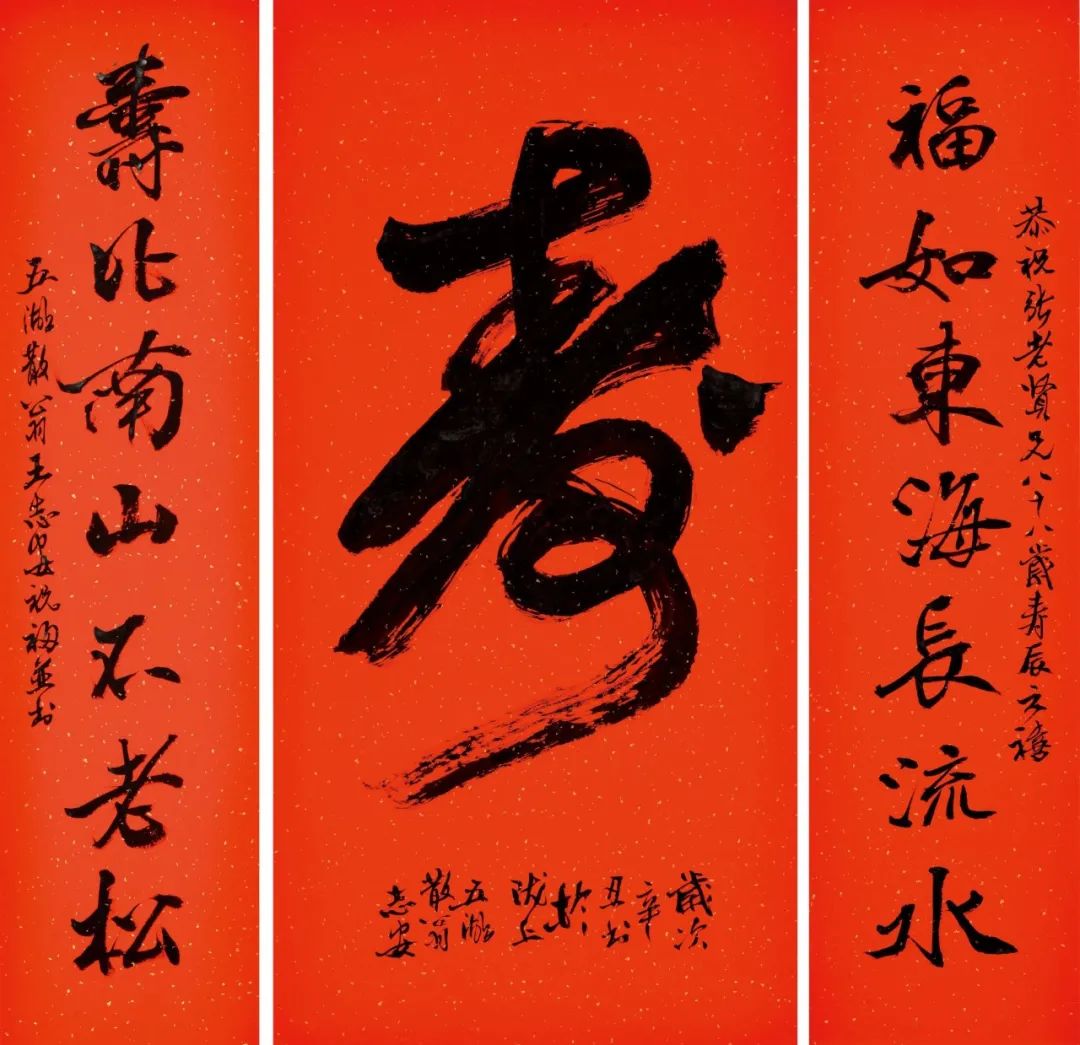 恭祝张老贤兄八十八歲寿辰之禧
福如東海長流水
寿
歲次
辛
丑书
於
上
五湖
散翁
志安
壽比南山不老松
五湖散翁王志安祝福並书